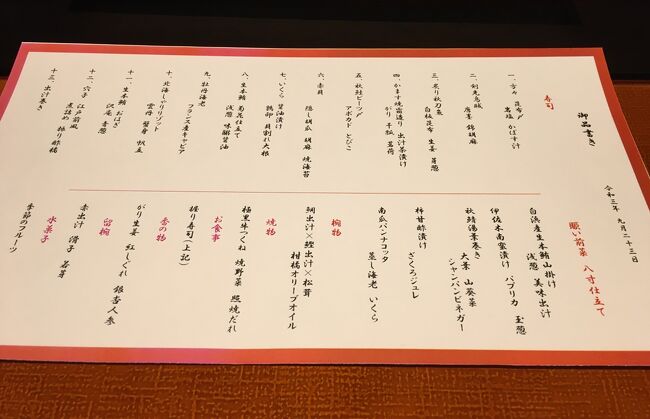 御品書き
令和三年 九月二十三日
賑い前菜 八寸仕立て
白浜産生本鮪山掛け
浅葱 美味出汁
伊佐木南蛮漬け
パプリカ 玉葱
秋鯖湯葉巻き
大葉 山葵菜
シャンパンビネガー
柿甘酢漬け
ざくろジュレ
南瓜パンナコッタ
蒸し海老 いくら
椀物
鯛出汁×鰹出汁×松茸
柑橘オリーブオイル
焼物
極黒牛つくね 焼野菜 照焼だれ
お食事
握り寿司(上記)
香の物
がり生姜 紅しぐれ 銀杏人参
留椀
赤出汁 滑子 若芽
水菓子
季節のフルーツ
寿司
一、方々 昆布〆
岩塩 かぼす汁
二、剣先烏賊
唐墨 錦胡麻
三、炙り秋刀魚
白板昆布 生姜 芽葱
四、かます焼霜造り 出汁茶漬け
がり 平松 茗荷
五、秋鮭ビーツ〆
アボカド とびこ
六、赤貝
隠し胡瓜 胡麻 焼海苔
七、いくら 醤油漬け
鶉卵 貝割れ大根
八、生本鮪 菊花仕立て
浅葱 味醂醤油
九、牡丹海老
フランス産キャビア
十、北海しゃりリゾット
雲丹 蟹身 帆立
十一、生本鮪 おはぎ
沢庵 青葱
十二、穴子 江戸前風
煮詰め 振り酢橘
十三、出汁巻き